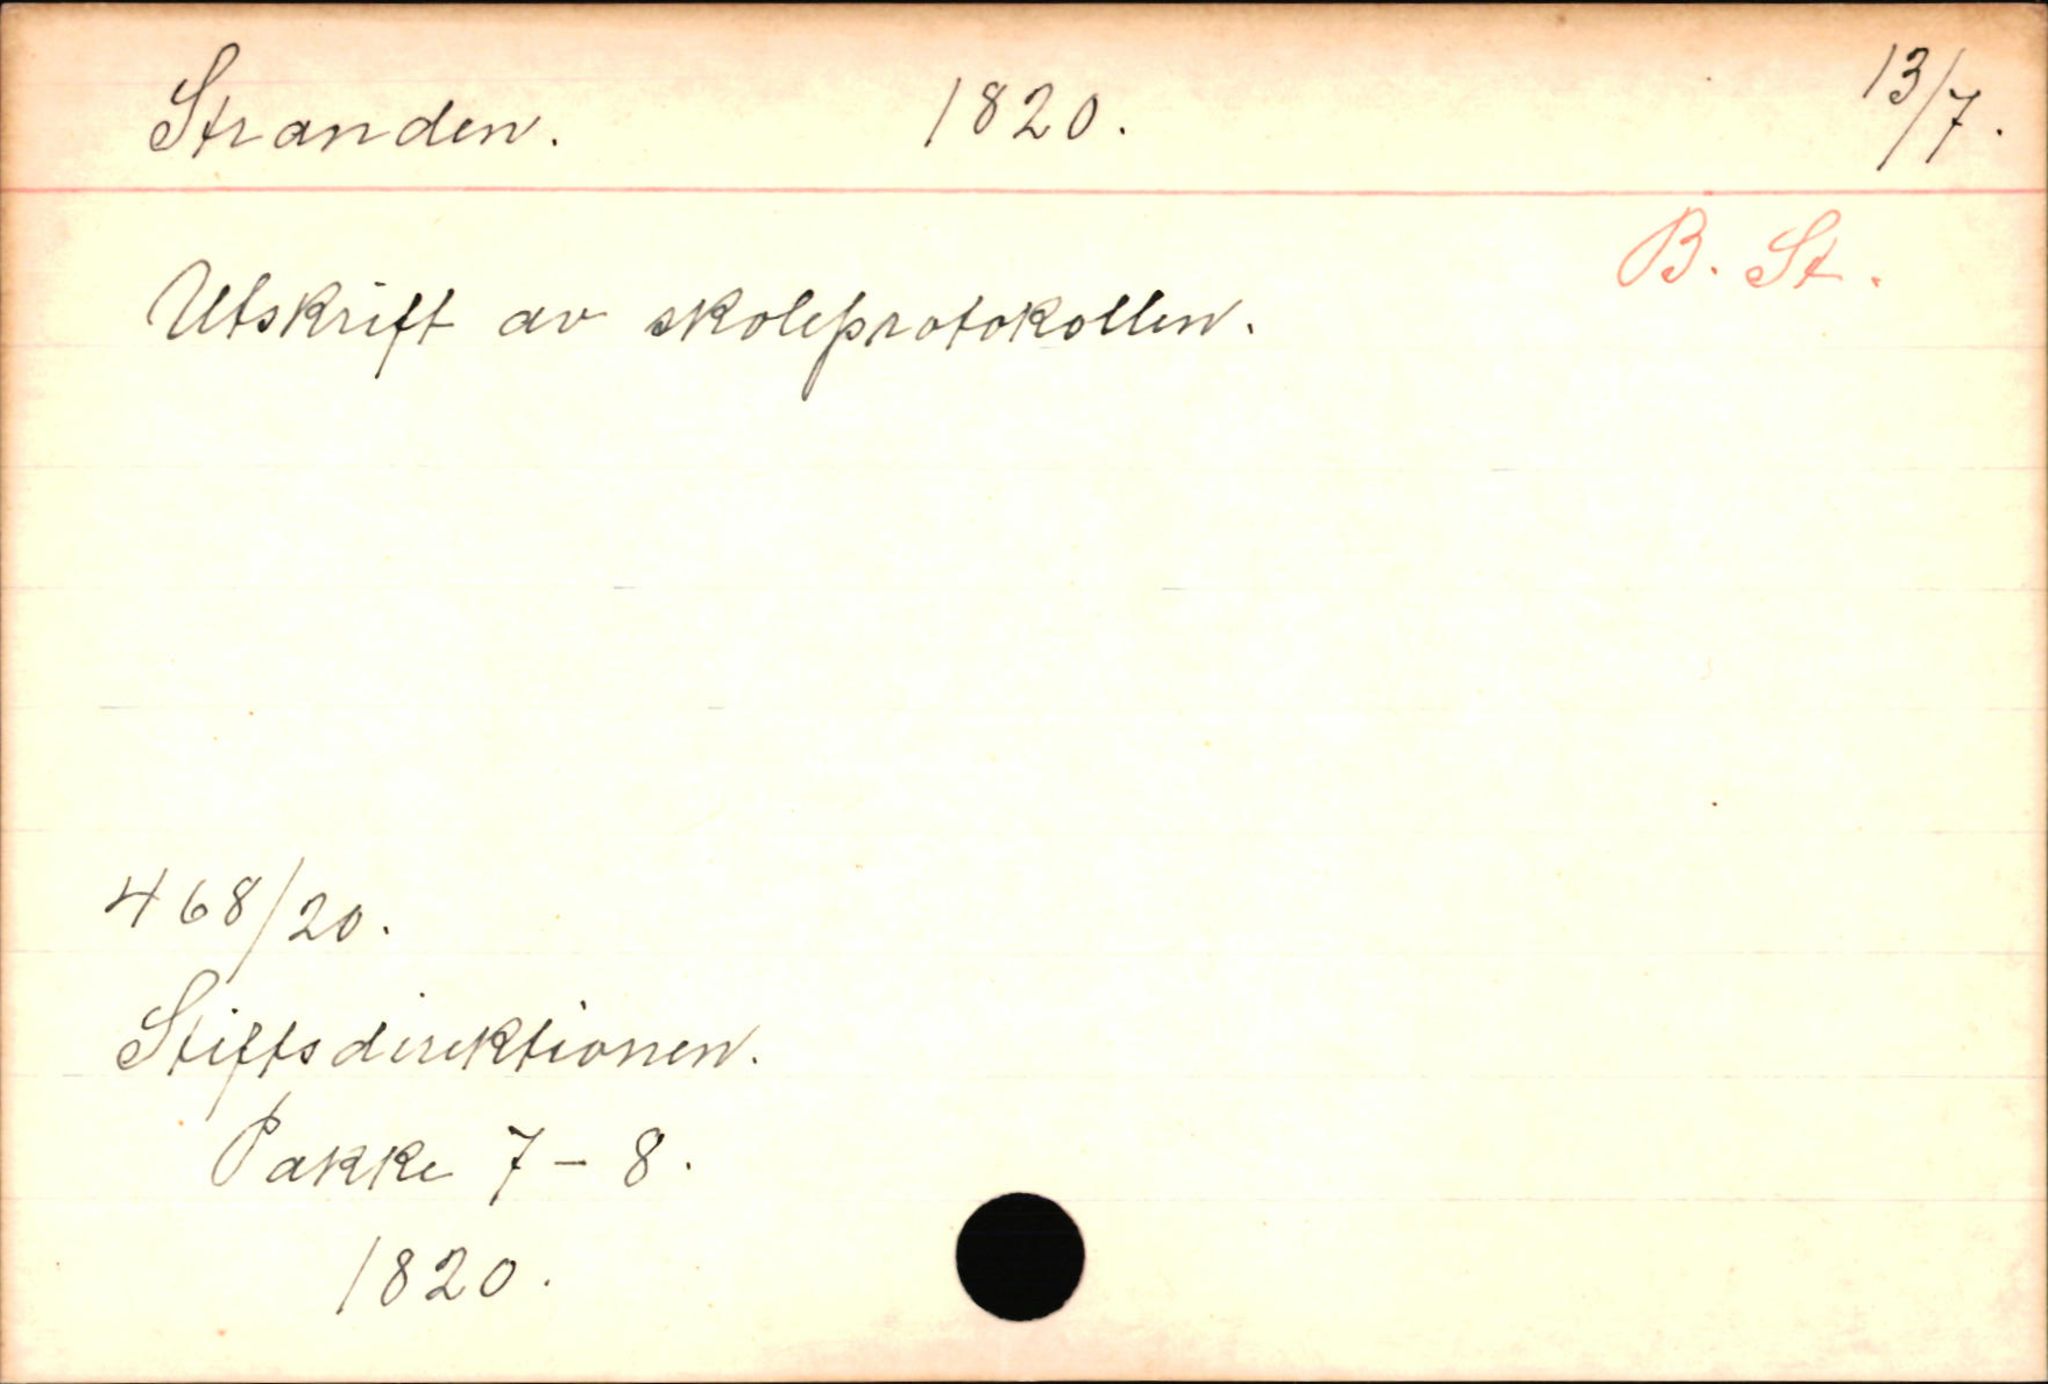 Stranden. 1820. 13/7.
B. St.
Utskrift av skoleprotokollen.
468/20.
Stiftsdirektionen.
Pakke 7-8.
1820.